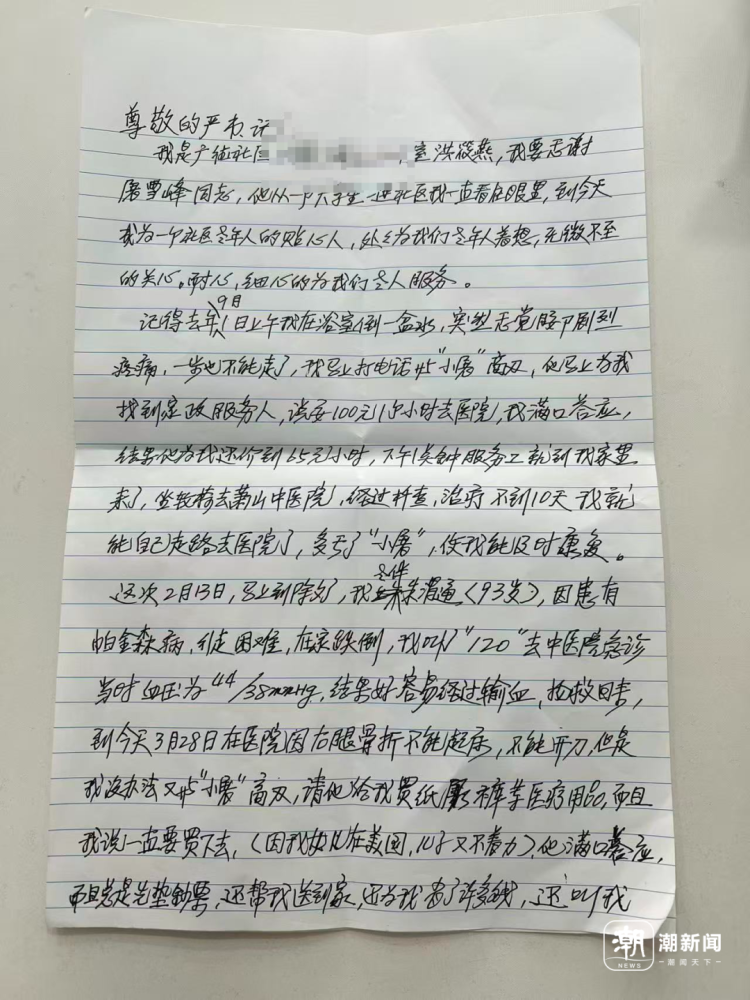 尊敬的严书记
我是广德社区 室洪筱燕,我要感谢
屠雪峰同志,他从一个大学生进社区我一直看在眼里,到今天
成为一个社区老年人的贴心人,处处为我们老年人着想,无微不至
的关心。耐心,细心的为我们老人服务。
记得去年9月1日上午我在浴室倒一盆水,突然感觉腰部剧烈
疼痛,一步也不能走了,我马上打电话与“小屠”商议,他马上为我
找到家政服务人,谈妥100元1个小时去医院,我满口答应,
结果他为我还价到65元/小时,下午1点钟服务工就到我家里
来了,坐轮椅去萧山中医院,经过检查,治疗不到10天我就
能自己走路去医院了,多亏了“小屠”,使我能及时康复。
这次2月13日,马上到除夕了,我老伴朱渭通(93岁),因患有
帕金森病,行走困难,在家跌倒,我叫“120”去中医院急诊
当时血压为44/38mmHg,结果好容易经过输血,抢救回来,
到今天3月28日在医院因右腿骨折不能起床,不能开刀,但是
我没办法又与“小屠”商议,请他给我买纸尿裤等医疗用品,而且
我说一直要买下去,(因我女儿在美国,儿子又不着力)他满口答应,
而且总是先垫钞票,还帮我送到家,还为我省了许多钱,还叫我
潮新闻
NEWS
潮闻天下